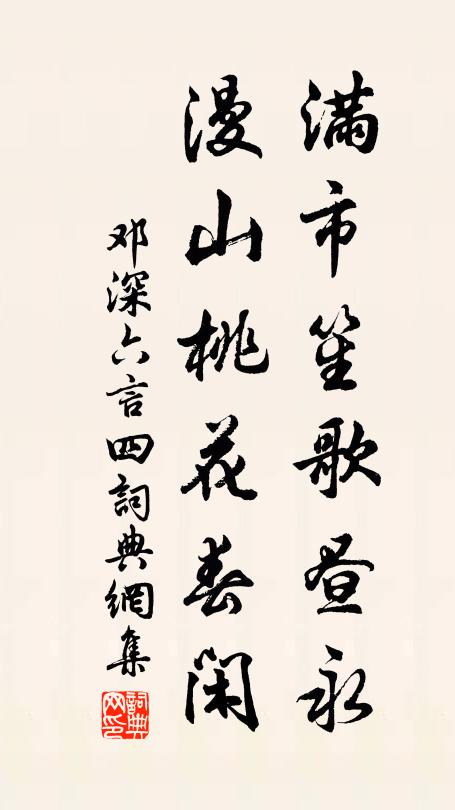 满市笙歌昼永
漫山桃花春闲
邓深六言四詞典網集
詞典网印